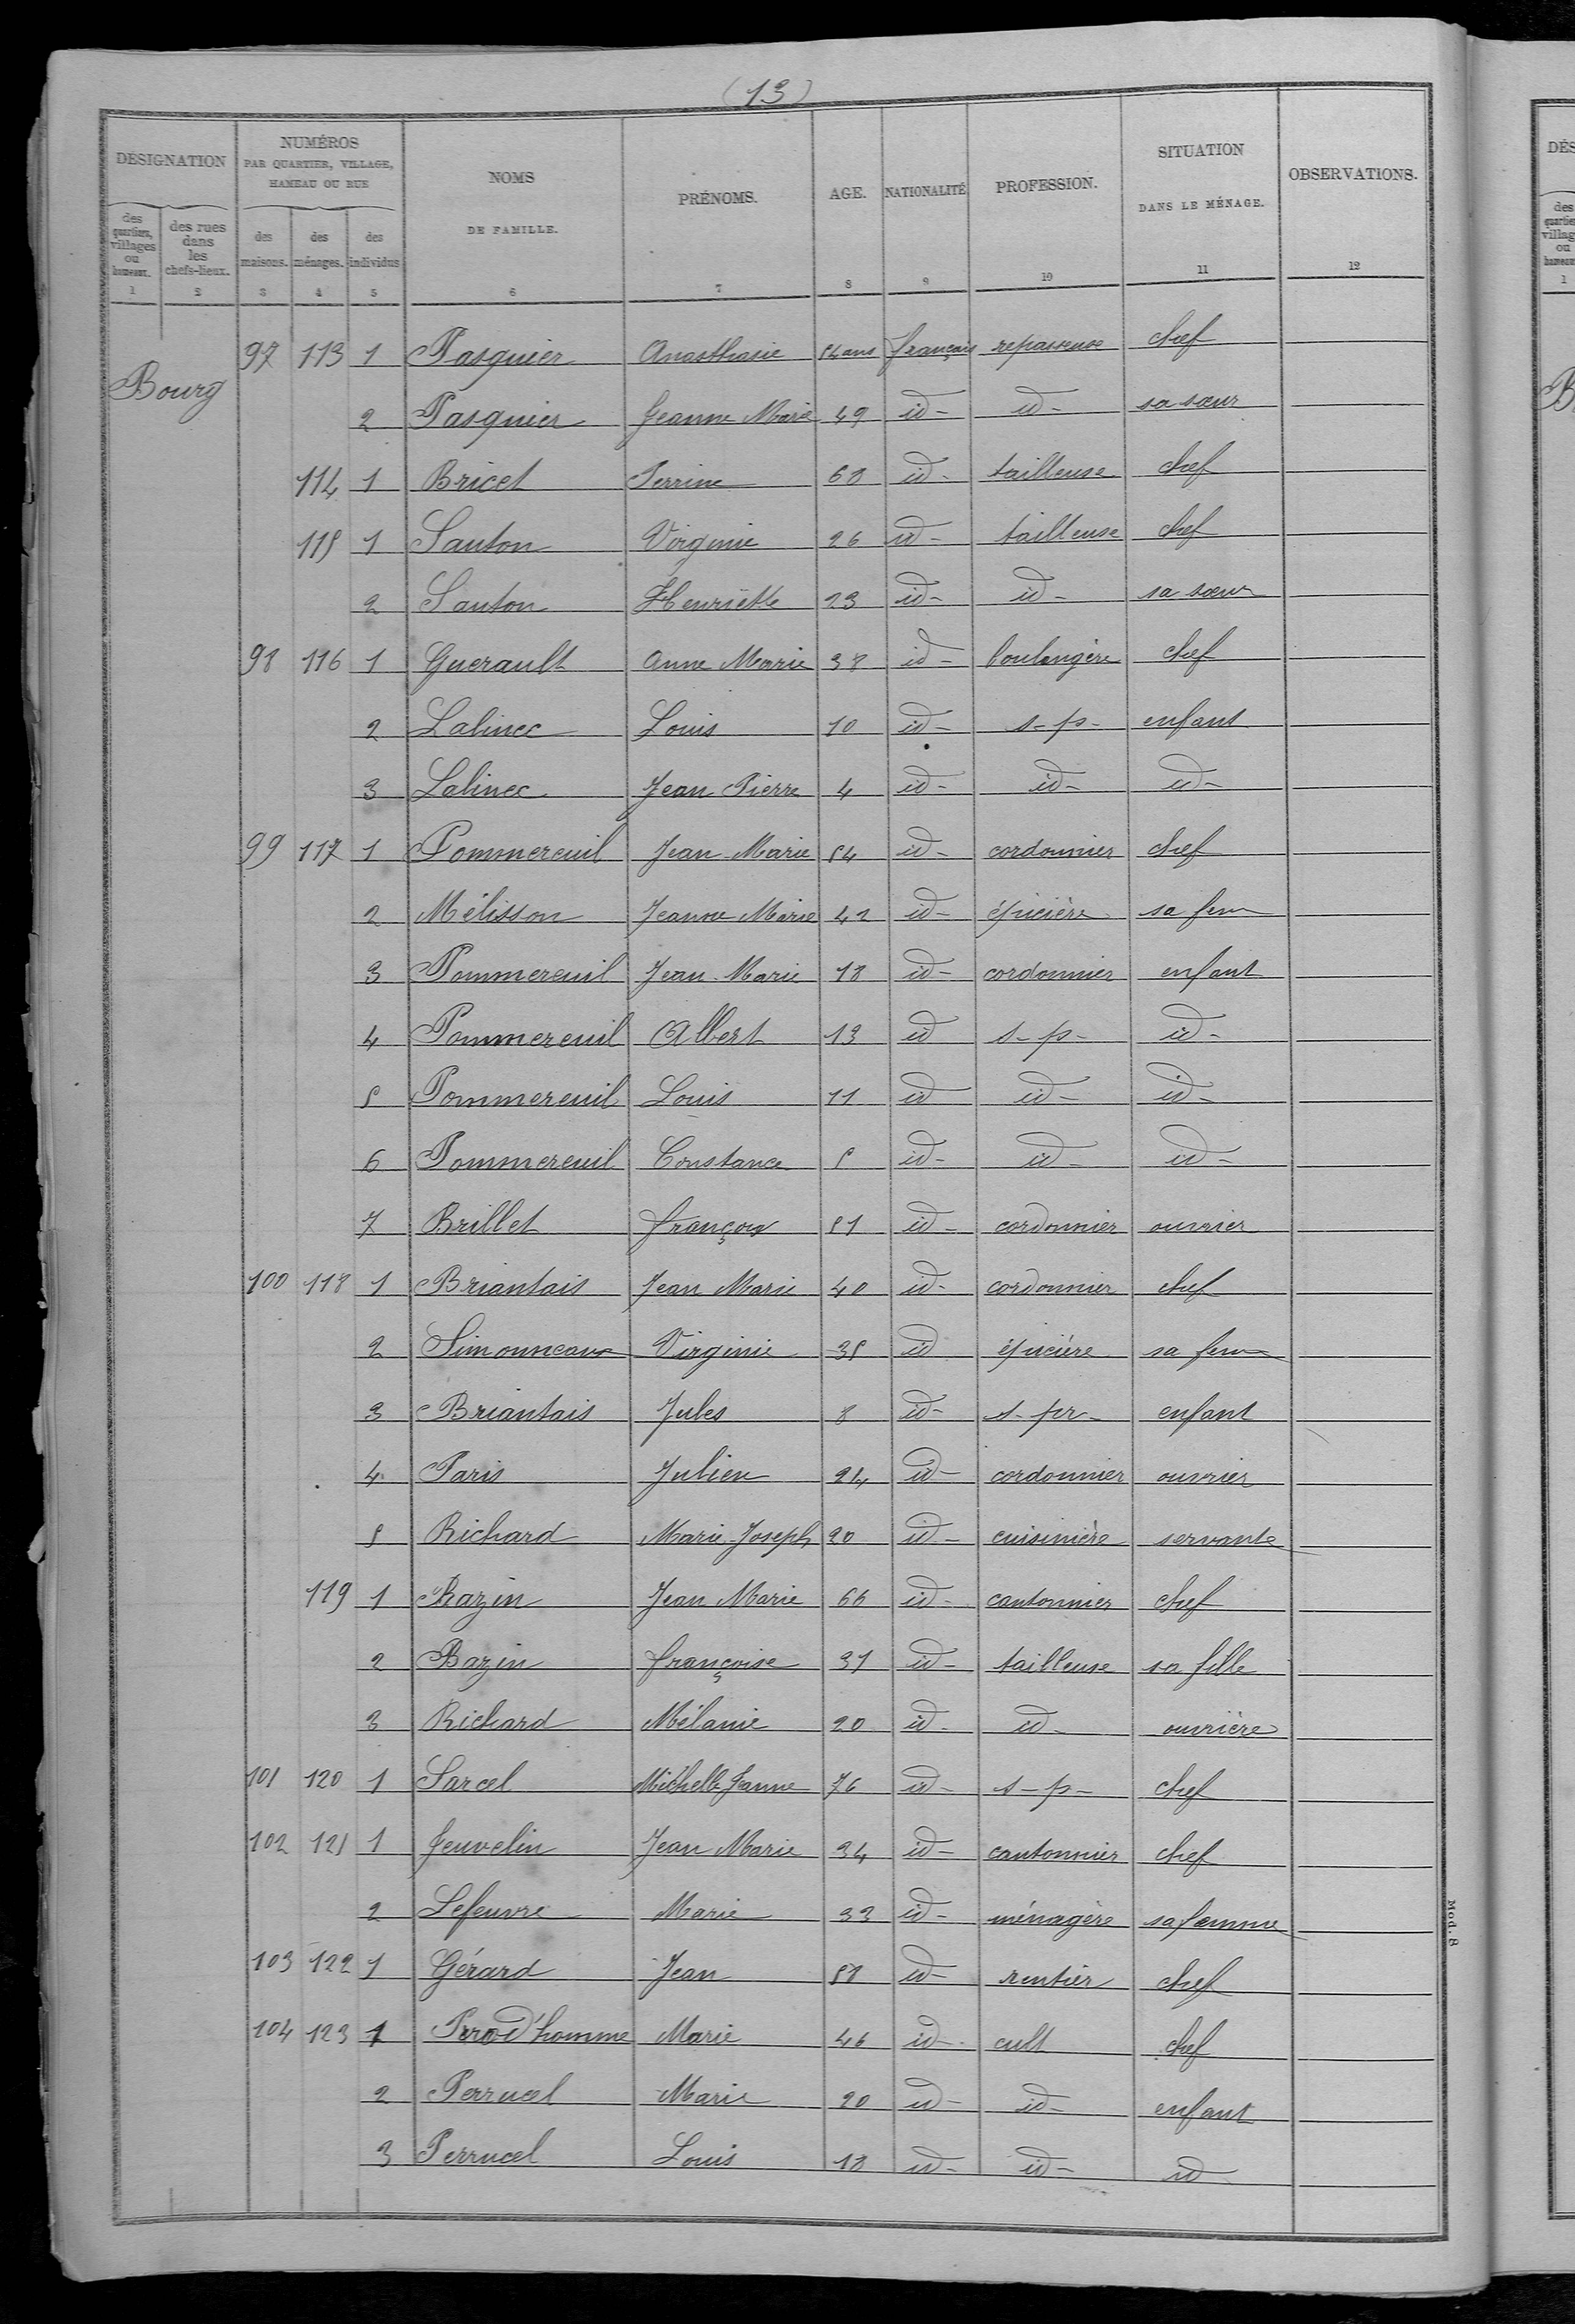 (13)
DÉSIGNATION | NUMÉROS PAR QUARTIER, VILLAGE, HAMEAU OU RUE | NOMS DE FAMILLE. | PRÉNOMS. | AGE. | NATIONALITÉ | PROFESSION. | SITUATION DANS LE MÉNAGE. | OBSERVATIONS.
des quartiers, villages ou hameaux. | des rues dans les chefs-lieux. | des maisons. | des ménages. | des individus
1 | 2 | 3 | 4 | 5 | 6 | 7 | 8 | 9 | 10 | 11 | 12
Bourg
97 113 1 Pasquier Anasthasie 54 ans français repasseuse chef
2 Pasquier Jeanne Marie 49 id- id- sa sœur
114 1 Bricet Perrine 68 id- tailleuse chef
115 1 Santon Virginie 26 id- tailleuse chef
2 Santon Henriette 23 id- id- sa sœur
98 116 1 Guerault Anne Marie 38 id- boulangère chef
2 Lalinec Louis 10 id- s-p- enfant
3 Lalinec Jean Pierre 4 id- id- id-
99 117 1 Pommereuil Jean-Marie 54 id- cordonnier chef
2 Mélisson Jeanne Marie 42 id- épicière sa fem
3 Pommereuil Jean-Marie 18 id- cordonnier enfant
4 Pommereuil Albert 13 id s-p- id-
5 Pommereuil Louis 11 id id- id-
6 Pommereuil Constance 5 id- id- id-
7 Brillet François 51 id- cordonnier ouvrier
100 118 1 Briantais Jean Marie 40 id- cordonnier chef
2 Simonneaux Virginie 35 id épicière sa fem
3 Briantais Jules 8 id- s-pr- enfant
4 Paris Julien 24 id- cordonnier ouvrier
5 Richard Marie-Joseph 20 id- cuisinière servante
119 1 Bazin Jean Marie 66 id- cantonnier chef
2 Bazin Françoise 31 id- tailleuse sa fille
3 Richard Mélanie 20 id- id- ouvrière
101 120 1 Sarcel Michelle Jeanne 76 id- s-p- chef
102 121 1 Jeuvelin Jean Marie 34 id- cantonnier chef
2 Lefeuvre Marie 33 id- ménagère sa femme
103 122 1 Gérard Jean 58 id- rentier chef
104 123 1 Prod'homme Marie 46 id- cult chef
2 Perrucel Marie 20 id- id- enfant
3 Perrucel Louis 18 id- id- id
Mod. 8